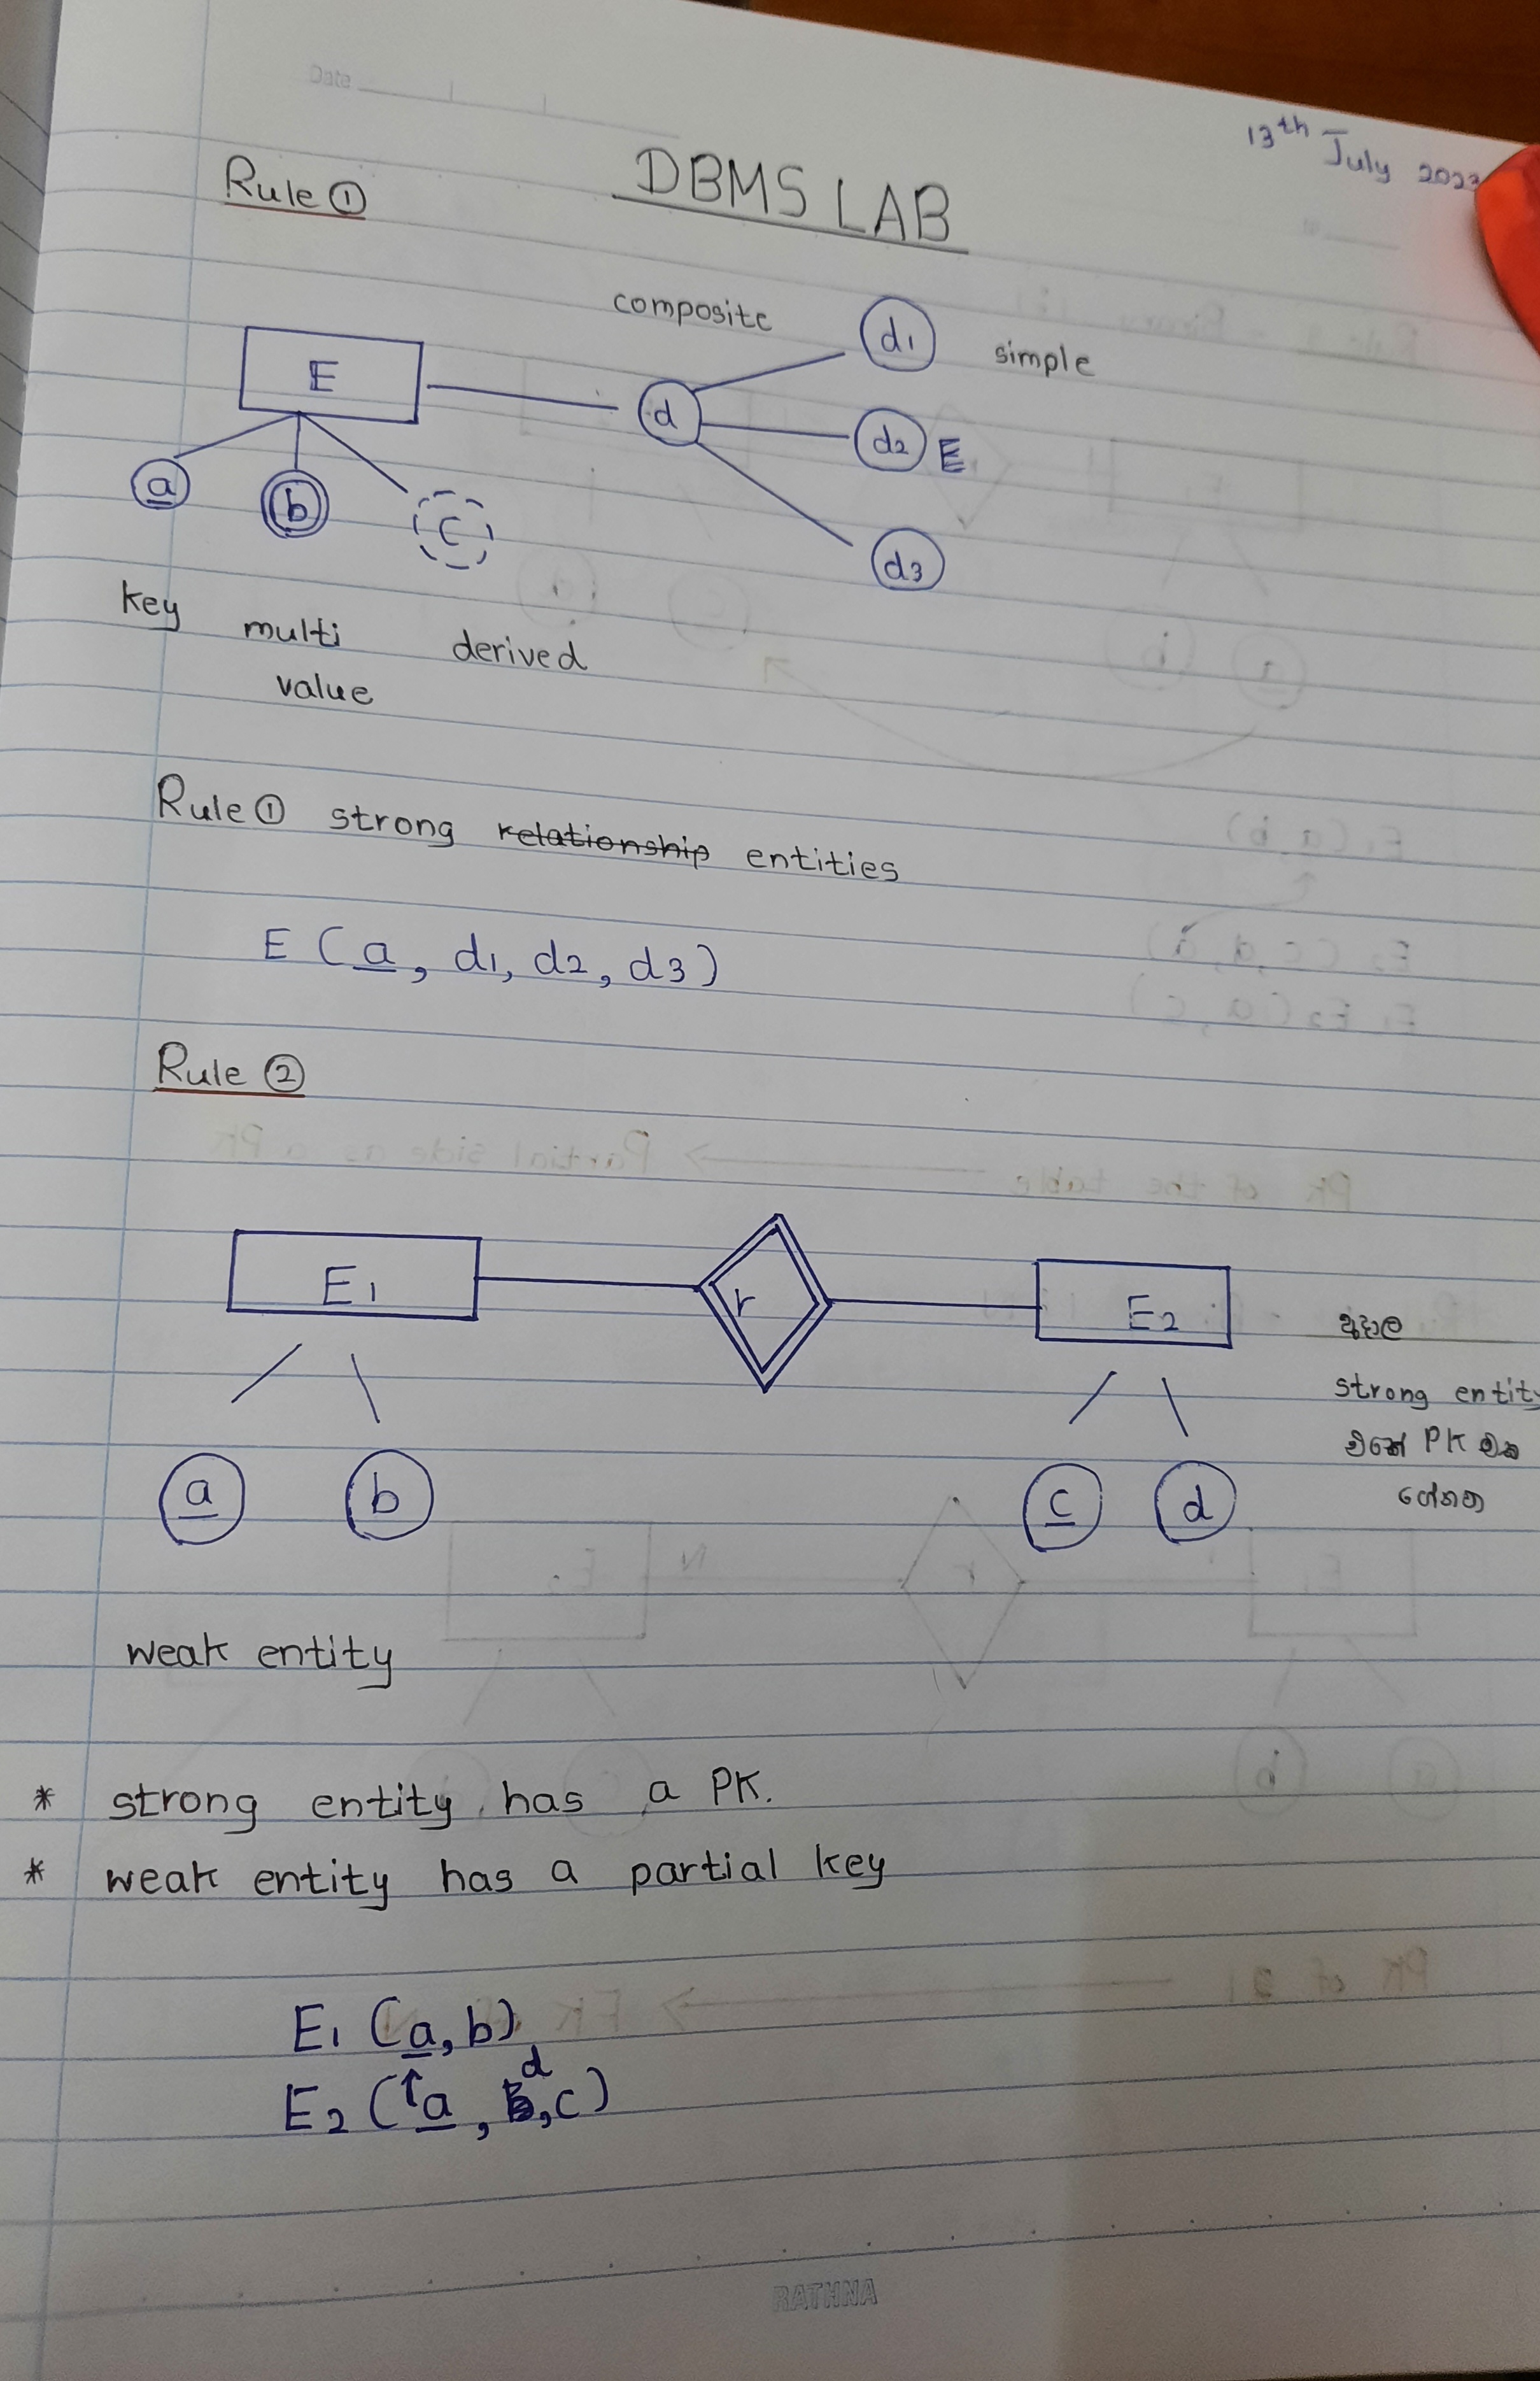 Date
13th July 2023
Rule ①
DBMS LAB
composite
d1
simple
E
d
d2 E
a
b
c
d3
key
multi
derived
value
Rule ① strong relationship entities
E (a, d1, d2, d3)
Rule ②
E1
r
E2
අදාල
strong entity
එකේ PK එක
ගේනවා
a
b
c
d
weak entity
* strong entity has a PK.
* weak entity has a partial key
E1 (a, b)
d
E2 (a, b, c)
RATHNA